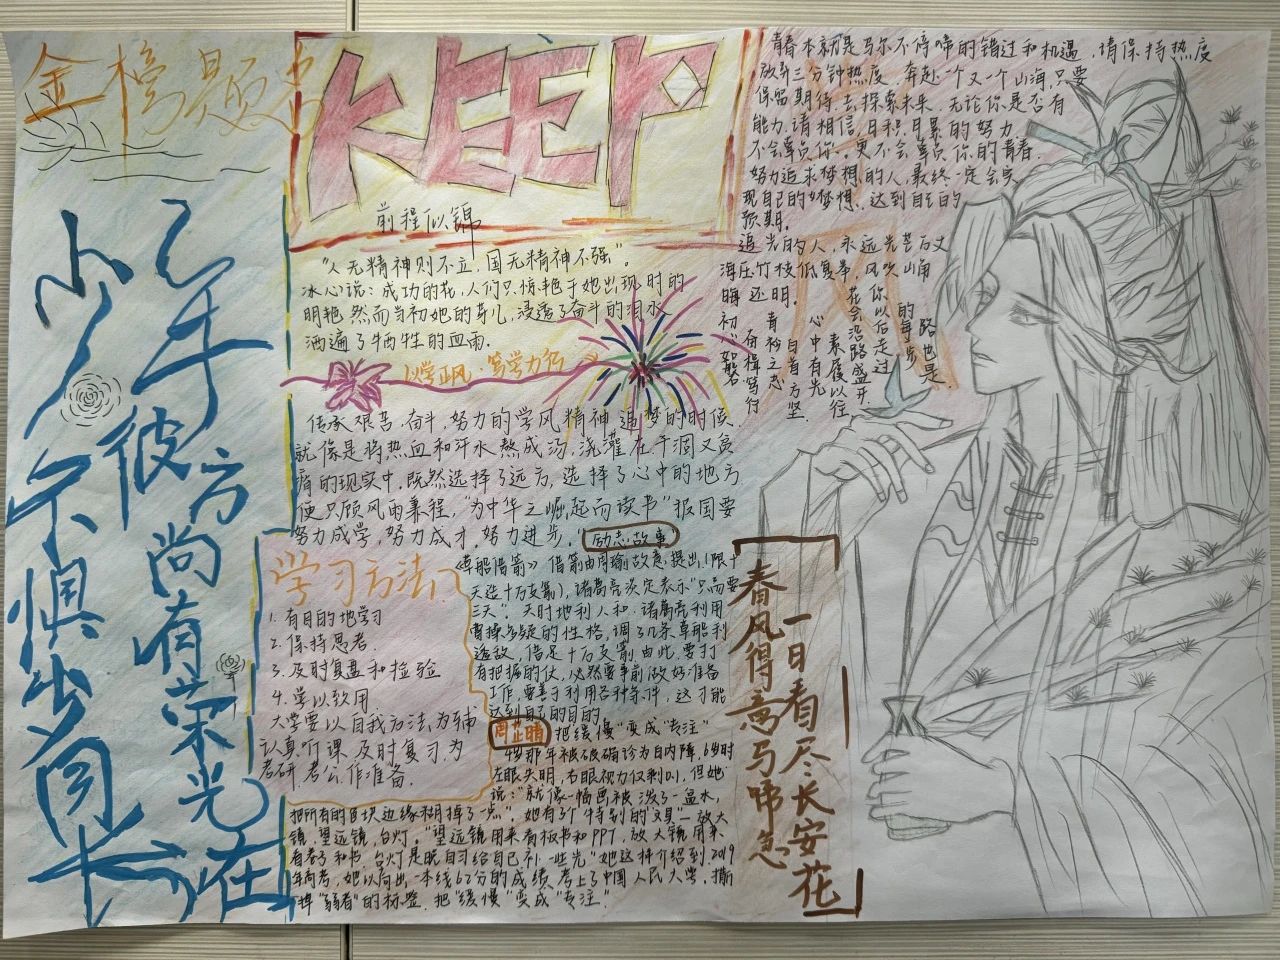 金榜题名
KEEP
前程似锦
少年不惧岁月长
彼方尚有荣光在
"人无精神则不立，国无精神不强"。
冰心说：成功的花，人们只惊艳于她出现时的
明艳 然而当初她的芽儿，浸透了奋斗的泪水
洒遍了牺牲的血雨.
以学正风·笃学力行
传承艰苦.奋斗，努力的学风精神 追梦的时候.
就像是将热血和汗水熬成汤，浇灌在干涸又贫
瘠的现实中.既然选择了远方，选择了心中的地方
便只顾风雨兼程，"为中华之崛起而读书"报国要
努力成学，努力成才，努力进步。
励志故事
青春本就是马尔不停啼的错过和机遇，请保持热度
放弃三分钟热度 奔赴一个又一个山海，只要
保留期待，去探索未来.无论你是否有
能力.请相信，日积月累的努力
不会辜负你。更不会辜负你的青春.
努力追求梦想的人，最终一定会实
现自己的"梦想"达到自己的
预期.
追光的人，永远光芒万丈
海压竹枝低复举，风吹山角
晦还明.
你以后走过
的每步
路也是
花会沿路盛开
素履以往
心中有光
白首方坚
青衿之志
初心如磐
奋楫笃行
学习方法.
1. 有目的地学习
2. 保持思考.
3. 及时复盘和检验
4. 学以致用.
大学要以自我为法，为辅
认真听课，及时复习.为
考研.考公作准备.
《草船借箭》借箭由周瑜故意提出(限十
天造十万支箭)，诸葛亮淡定表示"只需要
三天"。天时地利人和.诸葛亮利用
曹操多疑的性格，调了几条草船利
诱敌，借足十万支箭.由此，要打
有把握的仗，必然要事前做好准备
工作，要善于利用各种条件，这才能
达到自己的目的
周芷晴 把缓慢"变成"专注"
4岁那年被确诊为白内障，6岁时
左眼失明，右眼视力仅剩0.1，但她
说："就像一幅画被泼了一盆水，
把所有的色块边缘糊掉了一点"，她有3个特别的"文具"—放大
镜，望远镜，台灯。"望远镜用来看板书和PPT，放大镜用来
看卷子和书，台灯是晚自习给自己补一些光"她这样介绍到.2019
年高考，她以高出一本线67分的成绩，考上了中国人民大学，撕
掉"弱者"的标签，把"缓慢"变成"专注".
春风得意马啼急
一日看尽长安花